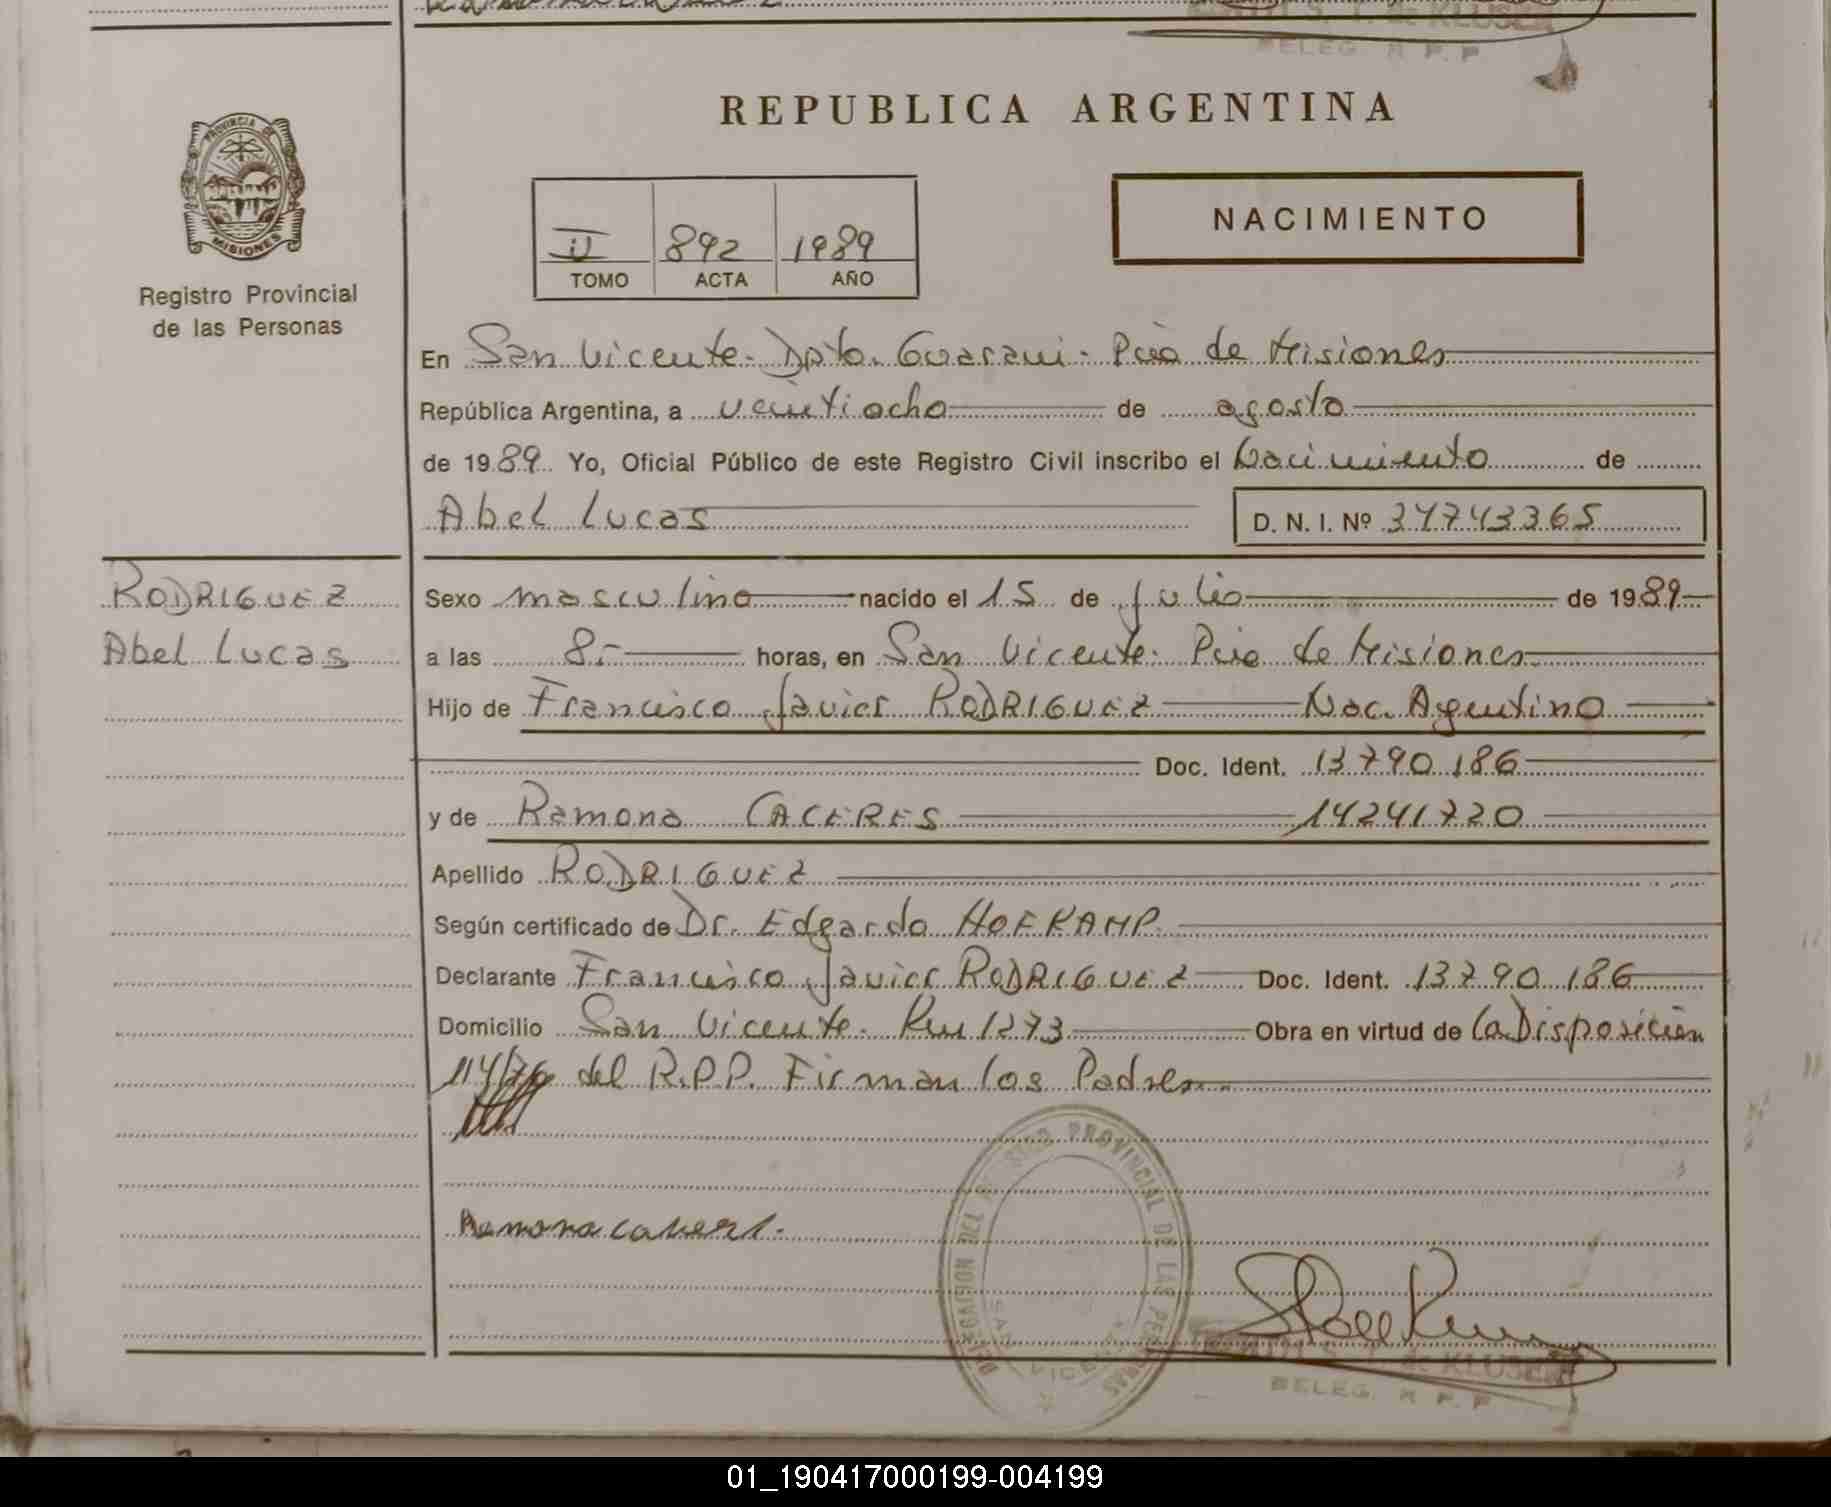 BELEG. R. P. P
REPUBLICA ARGENTINA
PROVINCIA DE
MISIONES
Registro Provincial
de las Personas
II 892 1989
TOMO ACTA AÑO
NACIMIENTO
En San Vicente. Dpto. Guarani. Pcia de Misiones
República Argentina, a veintiocho de agosto
de 1989. Yo, Oficial Público de este Registro Civil inscribo el Nacimiento de
Abel Lucas
D. N. I. Nº 34743365
RODRIGUEZ
Abel Lucas
Sexo masculino nacido el 15 de julio de 1989
a las 8.- horas, en San Vicente. Pcia de Misiones
Hijo de Francisco Javier RODRIGUEZ Nac. Argentino
Doc. Ident. 13790186
y de Ramona CACERES 14241720
Apellido RODRIGUEZ
Según certificado de Dr. Edgardo HOFKAMP.
Declarante Francisco Javier RODRIGUEZ Doc. Ident. 13790186
Domicilio San Vicente. Km 1273 Obra en virtud de la Disposición
114/76 del R.P.P. Firman los Padres
Ramona
DELEGACION DEL REGISTRO PROVINCIAL DE LAS PERSONAS
SAN VICENTE
de KLUSER
BELEG. R. P. P
01_190417000199-004199